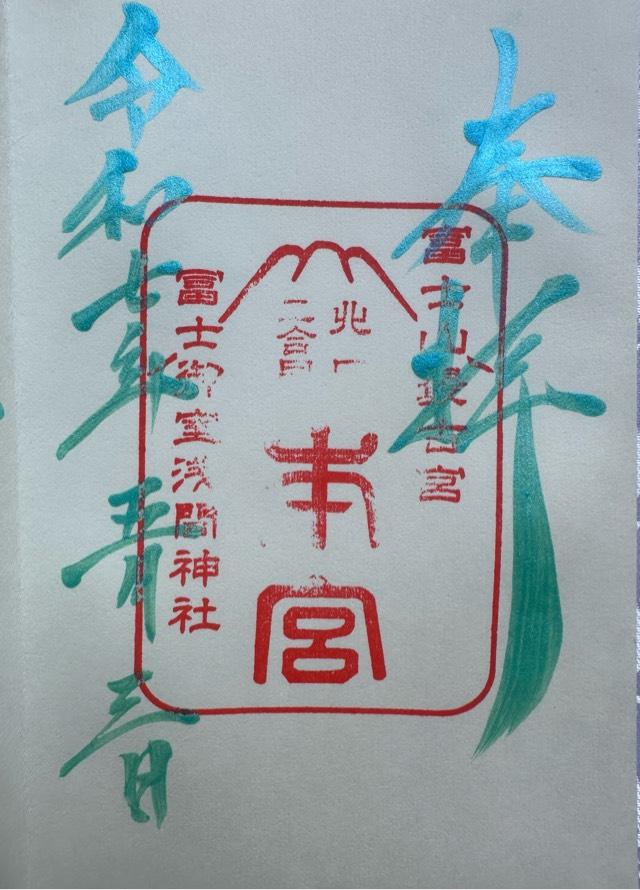 奉拝
富士山最古宮
北口
二合目
本宮
富士御室浅間神社
令和七年 五月 三日